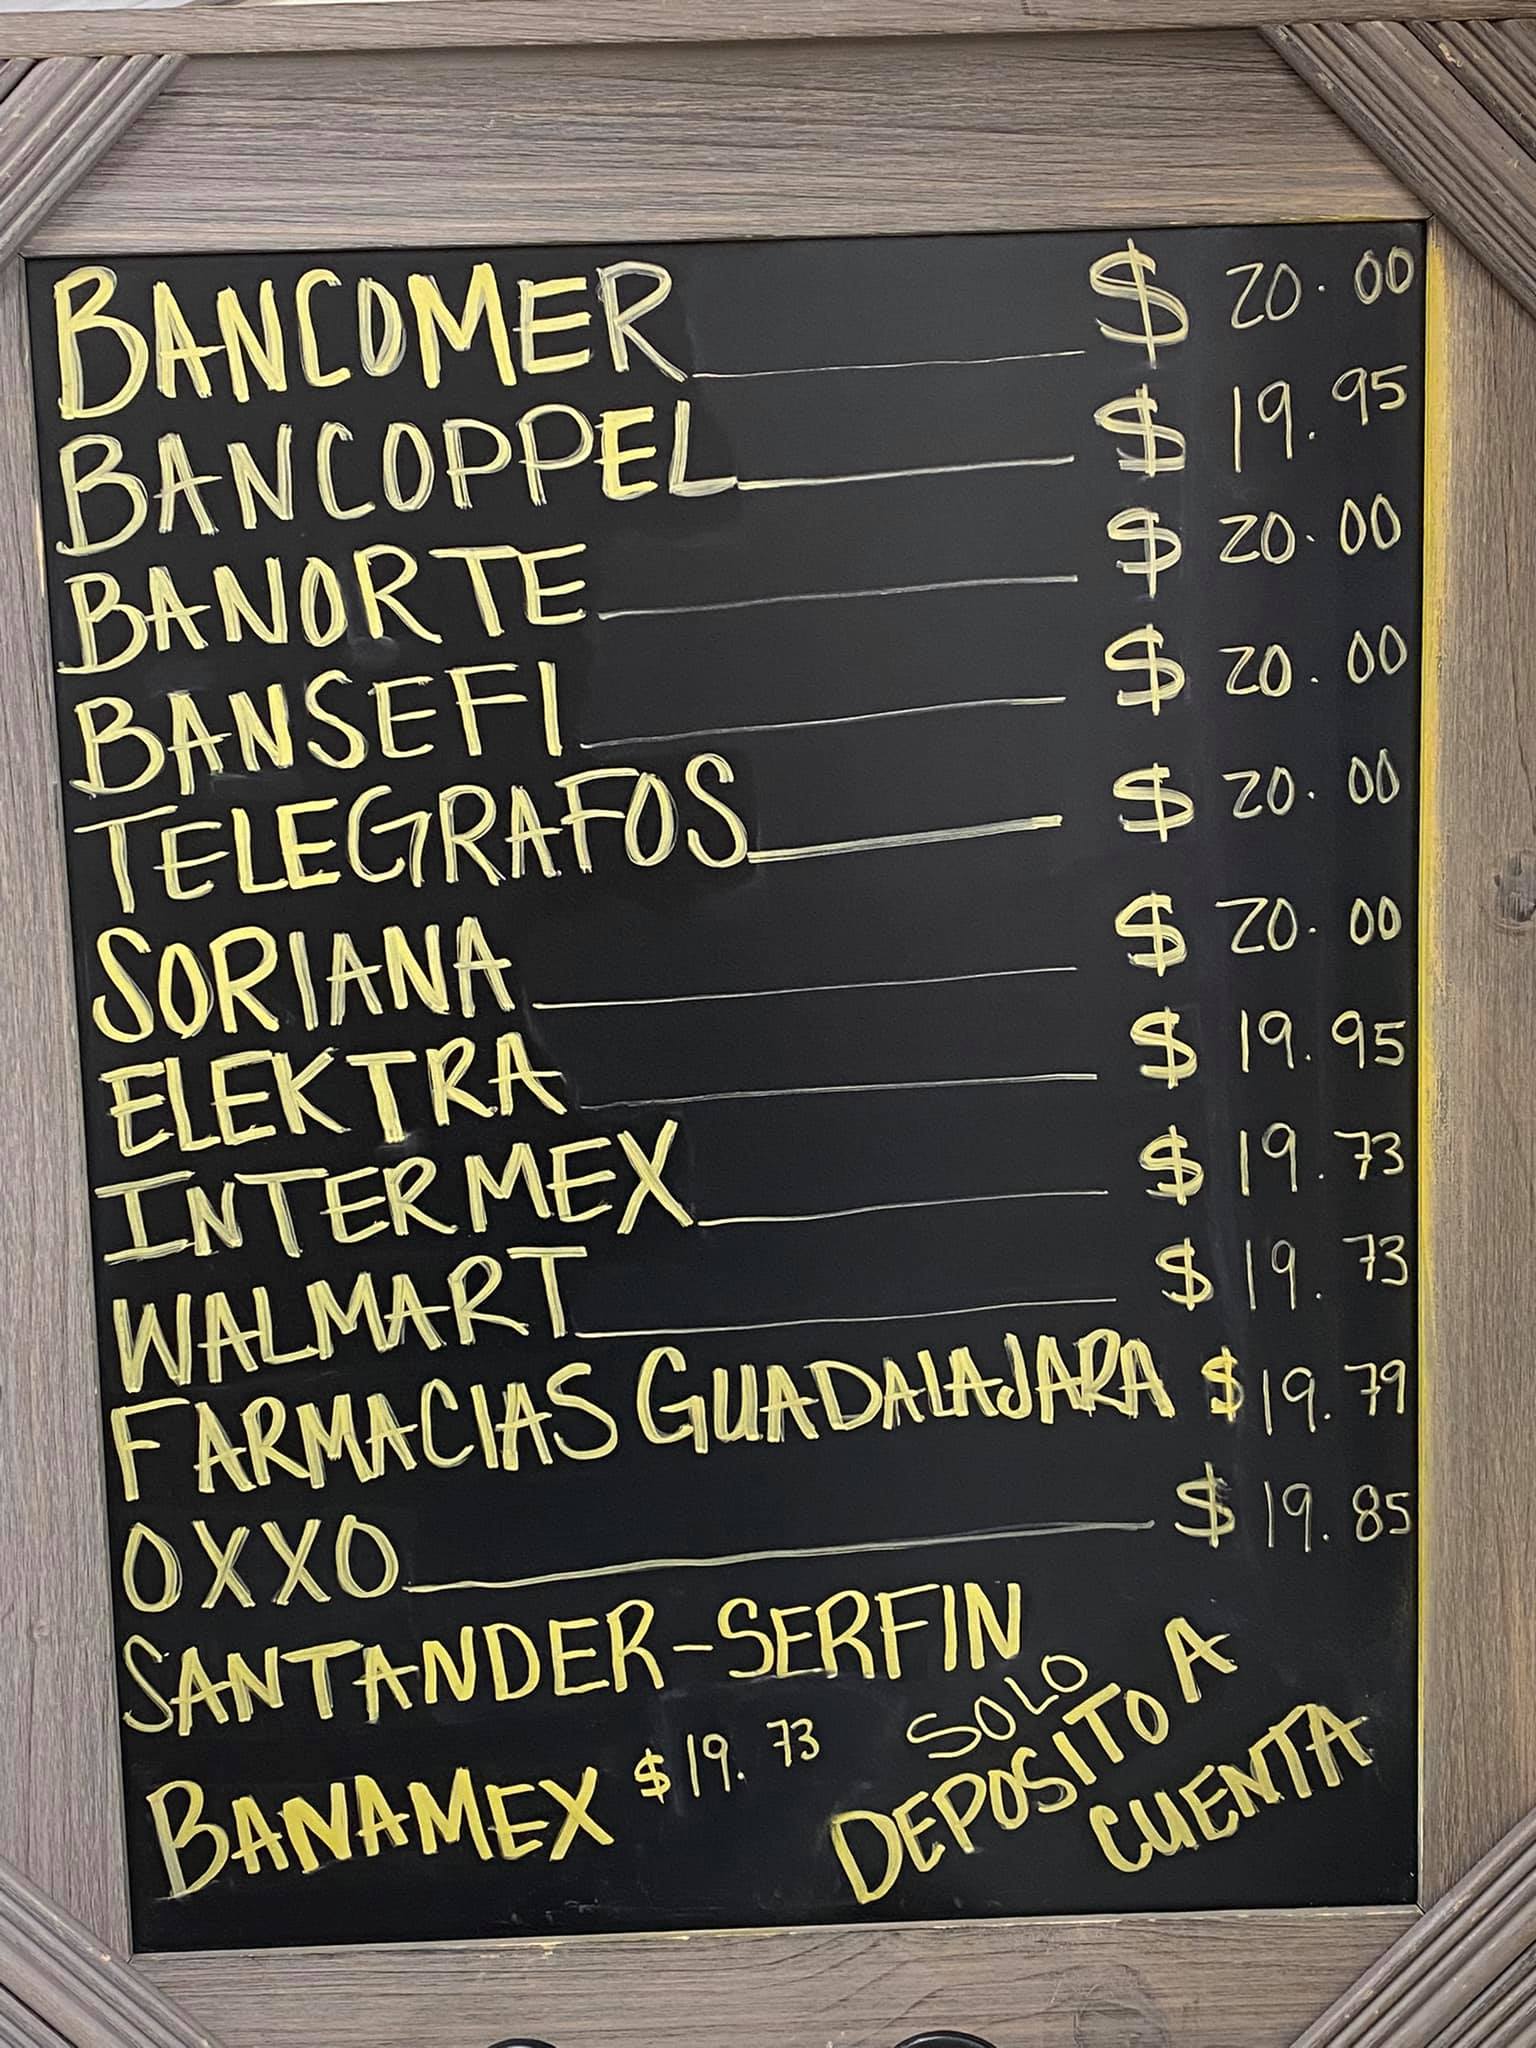 BANCOMER $ 20.00
BANCOPPEL $ 19.95
BANORTE $ 20.00
BANSEFI $ 20.00
TELEGRAFOS $ 20.00
SORIANA $ 20.00
ELEKTRA $ 19.95
INTERMEX $ 19.73
WALMART $ 19.73
FARMACIAS GUADALAJARA $ 19.79
OXXO $ 19.85
SANTANDER-SERFIN
BANAMEX $ 19.73
SOLO
DEPOSITO A
CUENTA